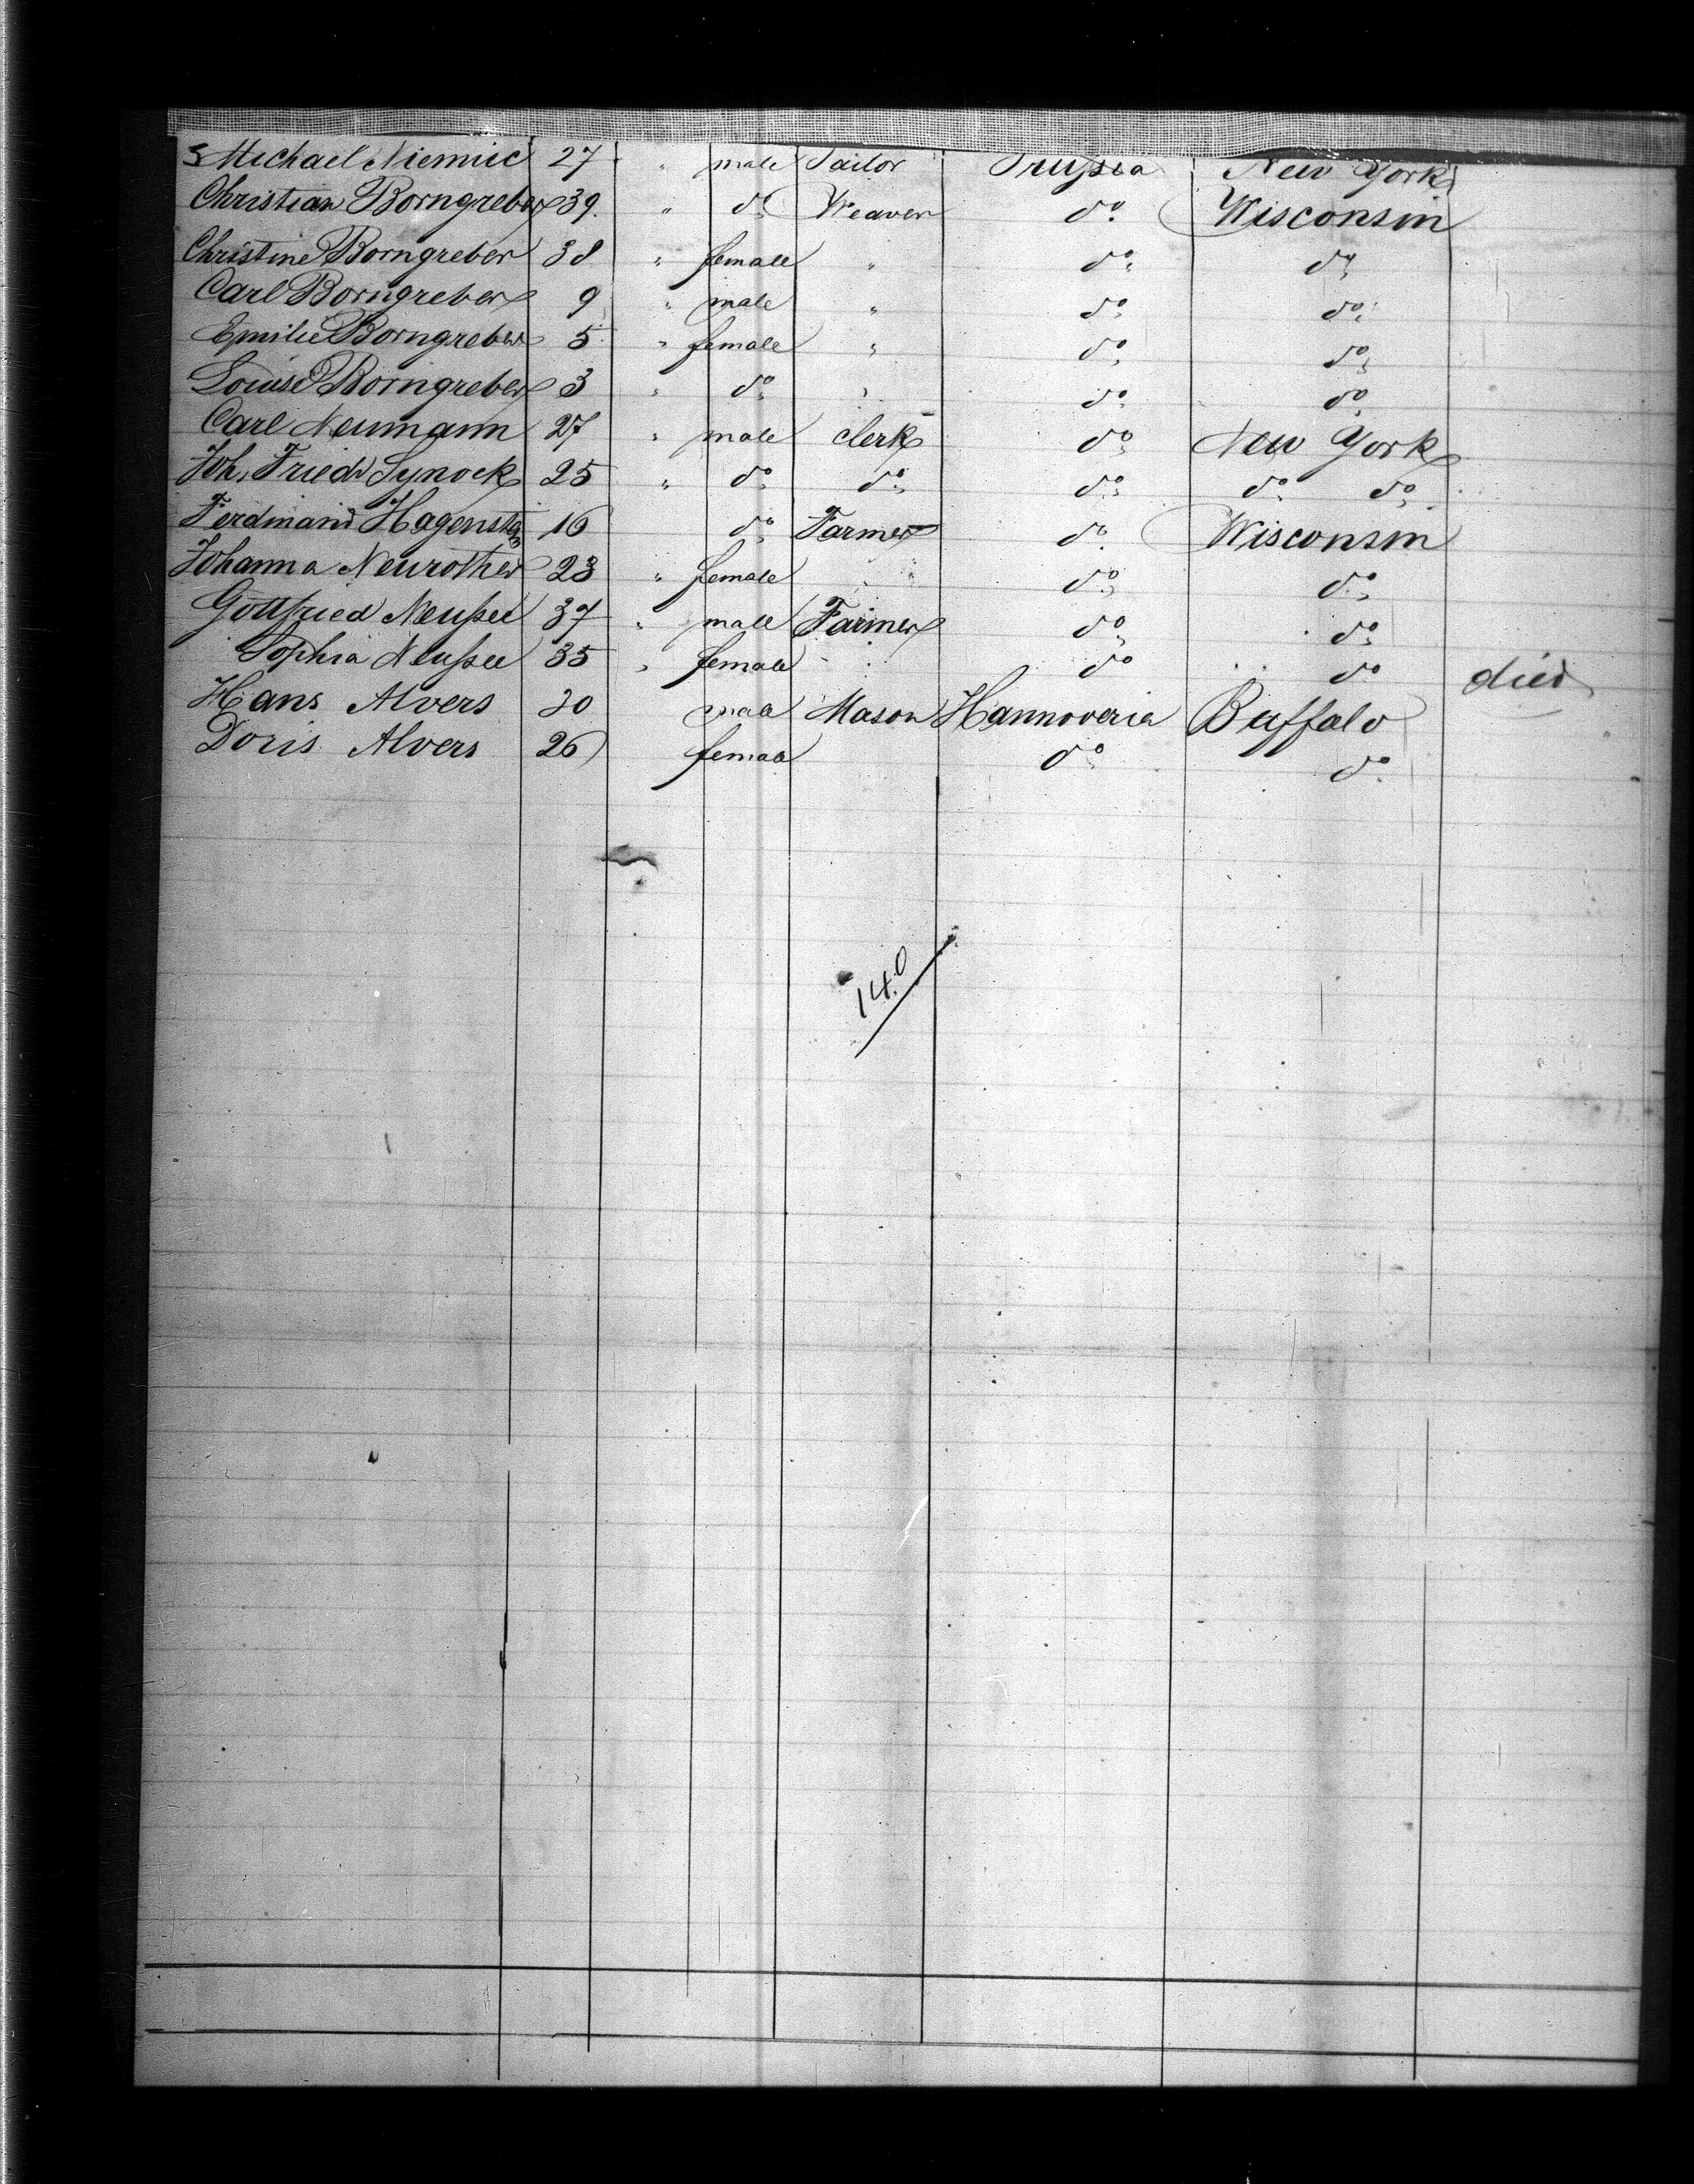 Michael Niemiec 27 " male Tailor Prussia New York
Christian Borngreber 39. " do Weaver do Wisconsin
Christine Borngreber 38 " female " do do
Carl Borngreber 9 " male " do do
Emilie Borngreber 5 " female " do do
Louise Borngreber 3 " do " do do
Carl Neumann 27 " male clerk do New York
Joh. Friedr Synock 25 " do do do do do
Ferdinand Hagenstein 16 do Farmer do Wisconsin
Johanna Neurother 23 " female do do
Gottfried 37 " male Farmer do do
Sophia 35 " female do do died
Hans Alvers 30 male Mason Hannoveria Buffalo
Doris Alvers 26 female do do
140